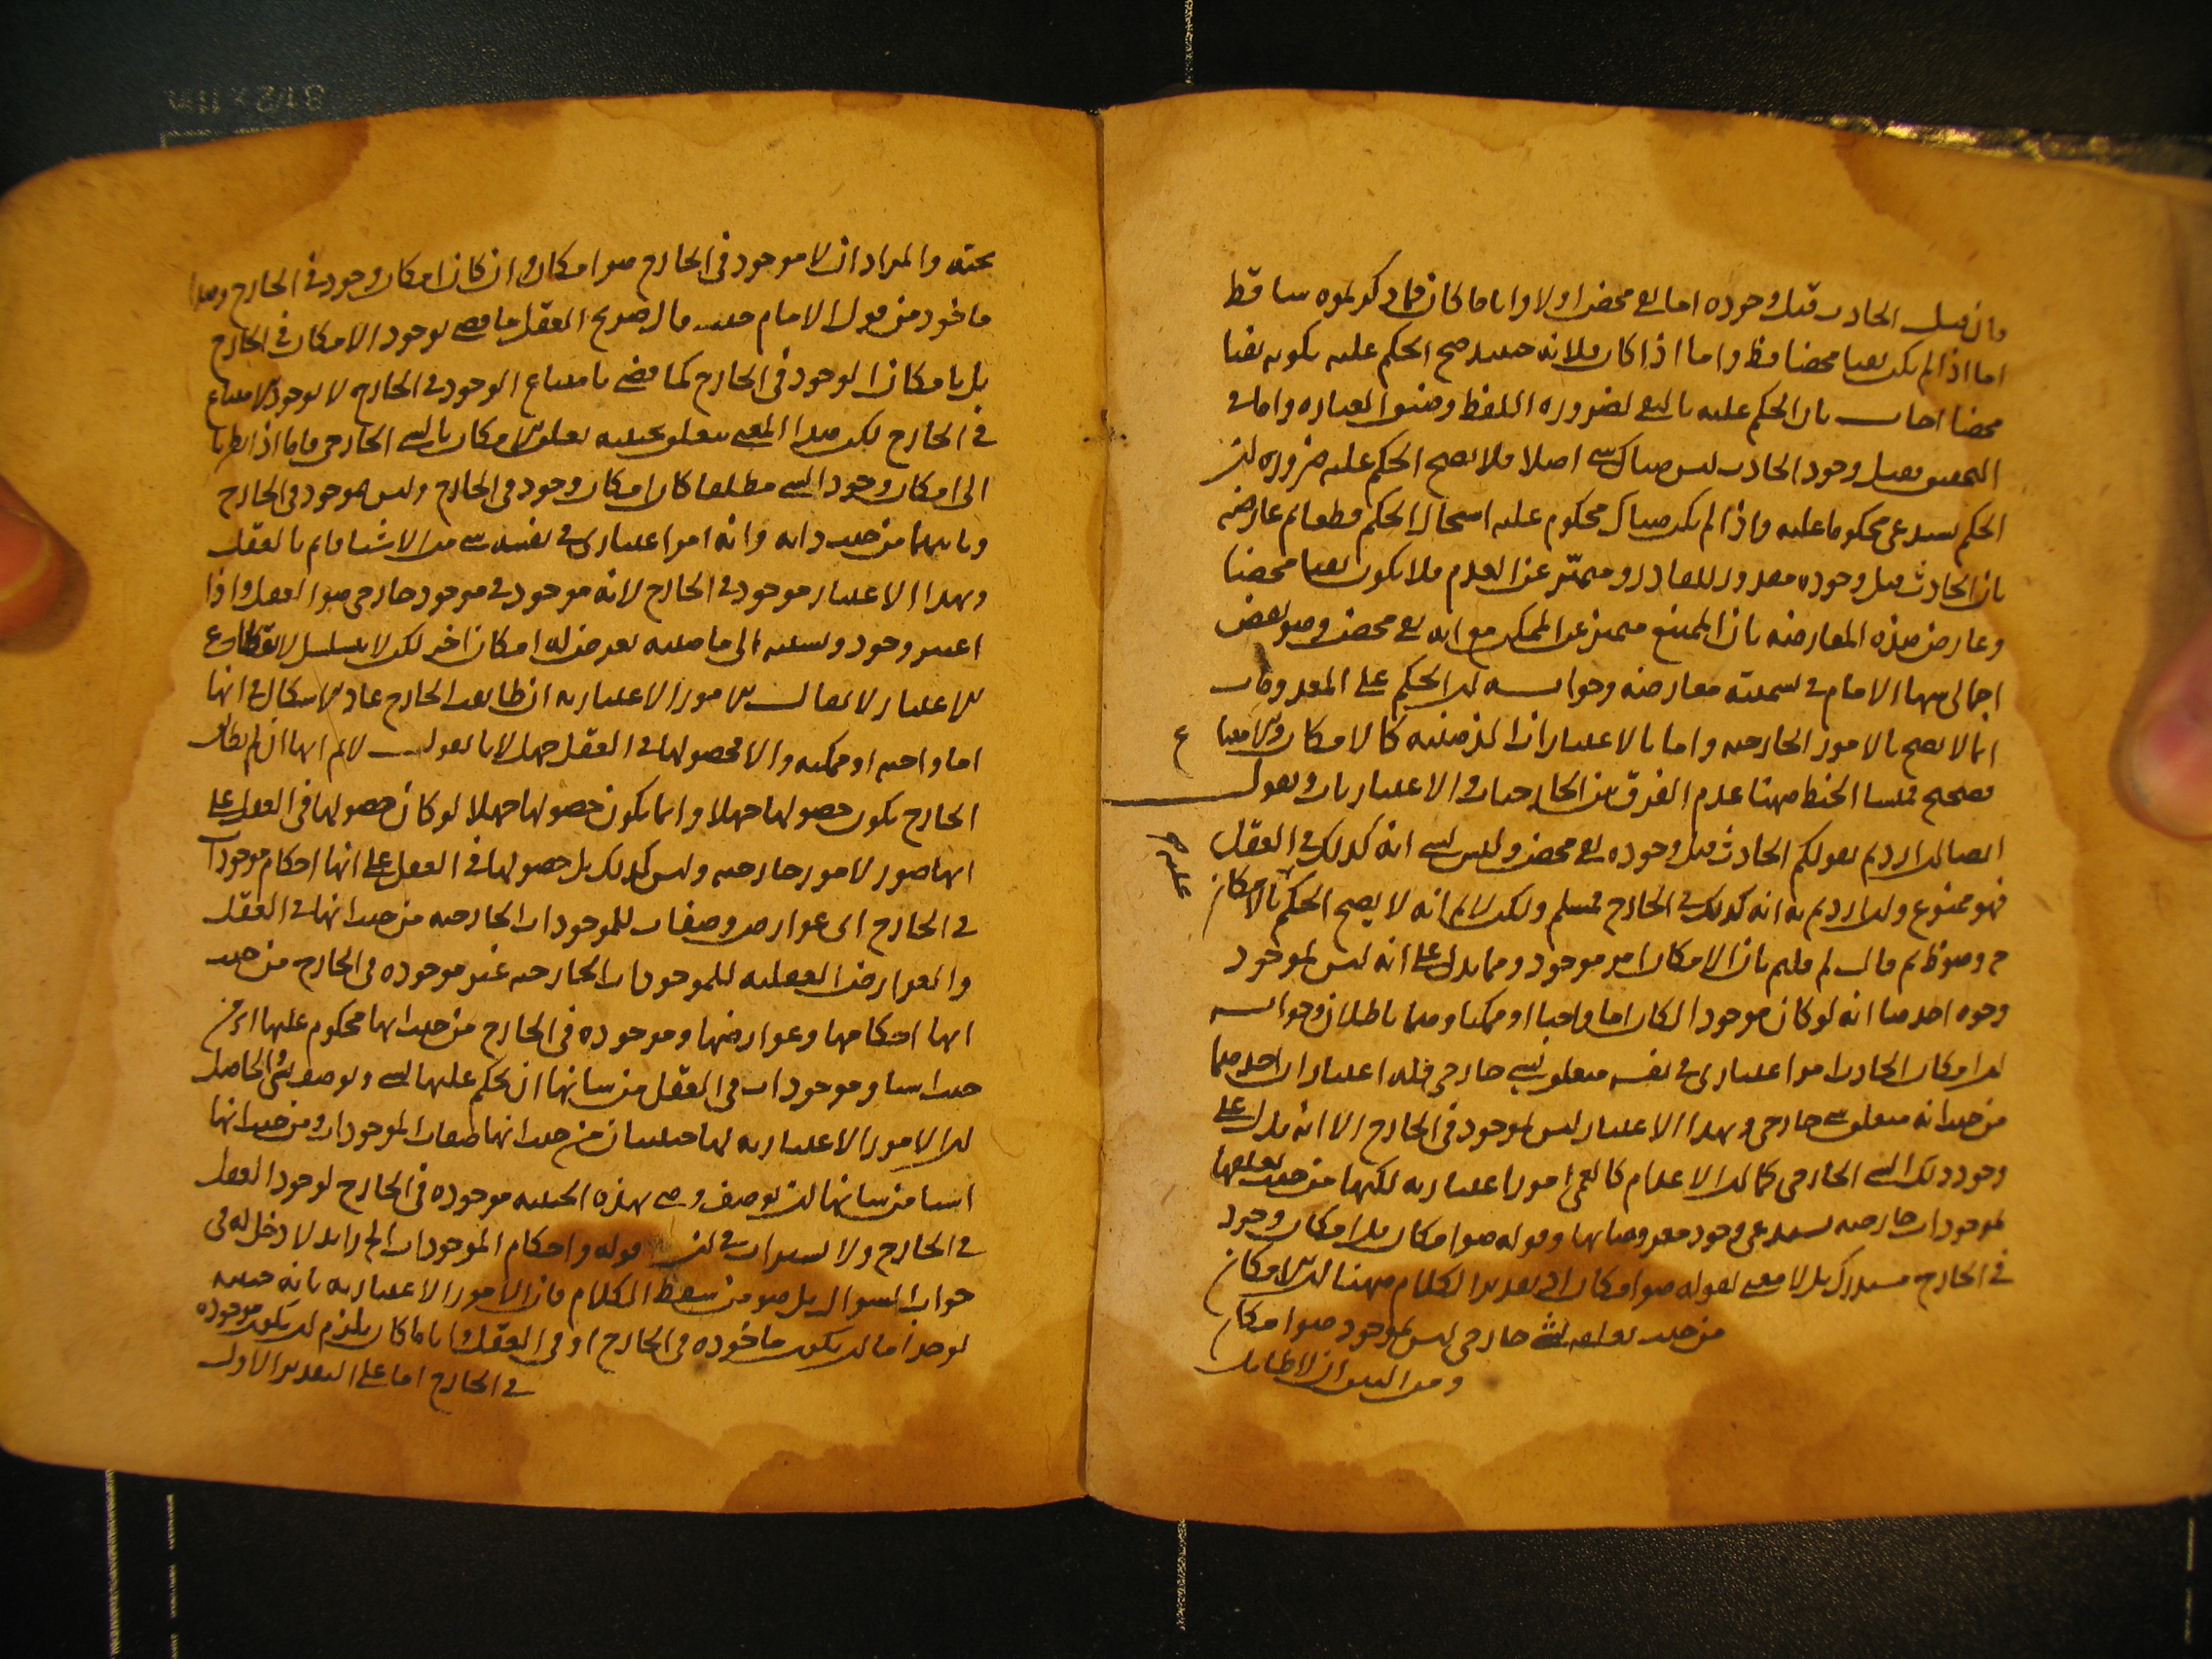 فان قيل الحادث قبل وجوده اما نفي محض اولا واياما كان فما ذكرتموه ساقط
اما اذا لم يكن نفيا محضا فظ واما اذا كان فلانه حينئذ صح الحكم عليه بكونه نفيا
محضا اجاب بان الحكم عليه بالنفي لضرورة اللفظ وضيق العبارة واما في
التحقيق فقبل وجود الحادث ليس هناك شي اصلا فلا يصح الحكم عليه ضرورة ان
الحكم يستدعي محكوما عليه واذا لم يكن هناك محكوم عليه استحال الحكم قطعا ثم عارضه
بان الحادث قبل وجوده مقدور للقادر ومتميز عن العدم فلا يكون نفيا محضا
وعارض هذه المعارضة بان الممتنع متميز عن الممكن مع انه نفي محض وهو نقض
اجمالي سهى الامام في تسميته معارضة وجوابه ان الحكم على المعدومات
انما لا يصح بالامور الخارجية واما بالاعتبارات الذهنية كالامكان والامتناع
فصحيح فمنشا الخبط ههنا عدم الفرق بين الخارجيات والاعتباريات ونقول
ايضا ان اردتم بقولكم الحادث قبل وجوده نفي محض وليس بشي انه كذلك في العقل
فهو ممنوع وان اردتم به انه كذلك في الخارج فمسلم ولكن لانم انه لا يصح الحكم بالامكان
عليه
ح وهو ظ ثم قال لم قلتم بان الامكان امر موجود ومما يدل على انه ليس بموجود
وجوه احدها انه لو كان موجودا لكان اما واجبا او ممكنا وهما باطلان وجوابه
ان امكان الحادث امر اعتباري في نفسه متعلق بشي خارجي فله اعتباران احدهما
من حيث انه متعلق بشي خارجي وبهذا الاعتبار ليس بموجود في الخارج الا انه يدل على
وجود ذلك الشي الخارجي كما ان الاعدام كالعمى امور اعتبارية لكنها من حيث تعلقها
بموجودات خارجية تستدعي وجود معروضاتها وقوله هو امكان بل امكان وجود
في الخارج مستدرك بل لا معنى لقوله هو امكان اذ تقدير الكلام ههنا ان الامكان
من حيث تعلقه بشي خارجي ليس بموجود هو امكان
ومن البين ان لا طايل
تحته والمراد ان لا موجود في الخارج هو امكان وان كان امكان وجود في الخارج وهذا
ماخوذ من قول الامام حيث قال صريح العقل ما قضى بوجود الامكان في الخارج
بل بامكان الوجود في الخارج كما قضى بامتناع الوجود في الخارج لا بوجود الامتناع
في الخارج لكن هذا المعنى يتعلق بحيثية تعلق الامكان بالشي الخارجي فاما اذا نظرنا
الى امكان وجود الشي مطلقا كان امكان وجود في الخارج وليس بموجود في الخارج
وثانيهما من حيث ذاته وانه امر اعتباري في نفسه شي من الاشيا قايم بالعقل
وبهذا الاعتبار موجود في الخارج لانه موجود في موجود خارجي هو العقل واذا
اعتبر وجوده ونسبته الى ماهيته يعرض له امكان اخر لكن لا يتسلسل لانقطاع
الاعتبار لا يقال الامور الاعتبارية ان طابقت الخارج عاد الاشكال في انها
اما واجبة او ممكنة والا فحصولها في العقل جهل لانا نقول لانم انها ان لم تطابق
الخارج يكون حصولها جهلا وانما يكون حصولها جهلا لو كان حصولها في العقل على
انها صور لامور خارجية وليس كذلك بل حصولها في العقل على انها احكام موجودات
في الخارج اي عوارض وصفات للموجودات الخارجية من حيث انها في العقل
والعوارض العقلية للموجودات الخارجية غير موجودة في الخارج من حيث
انها احكامها وعوارضها وموجودة في الخارج من حيث انها محكوم عليها اي من
حيث انها موجودات في العقل من شانها ان يحكم عليها بشي وتوصف بشي والحاصل
ان الامور الاعتبارية لها حيثيتان من حيث انها صفات الموجودات ومن حيث انها
اشيا من شانها ان توصف وهي بهذه الحيثية موجودة في الخارج لوجود العقل
في الخارج ولا استدراك في ان قوله واحكام الموجودات الخ زايد لا دخل له في
جواب السوال بل هو من سقط الكلام فان الامور الاعتبارية بانه حيثية
توخذ اما ان يكون ماخوذة في الخارج او في العقل واياما كان يلزم ان يكون موجودة
في الخارج اما على التقدير الاول